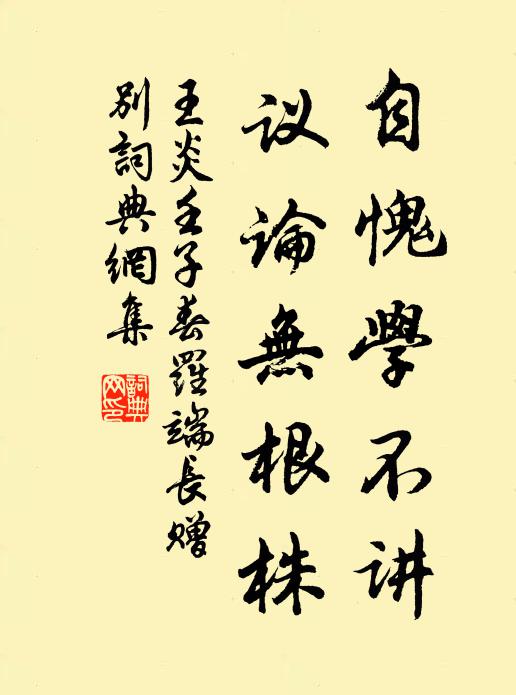 自愧學不讲
议論無根株
王炎壬子春羅端長赠
别詞典網集
詞典网印